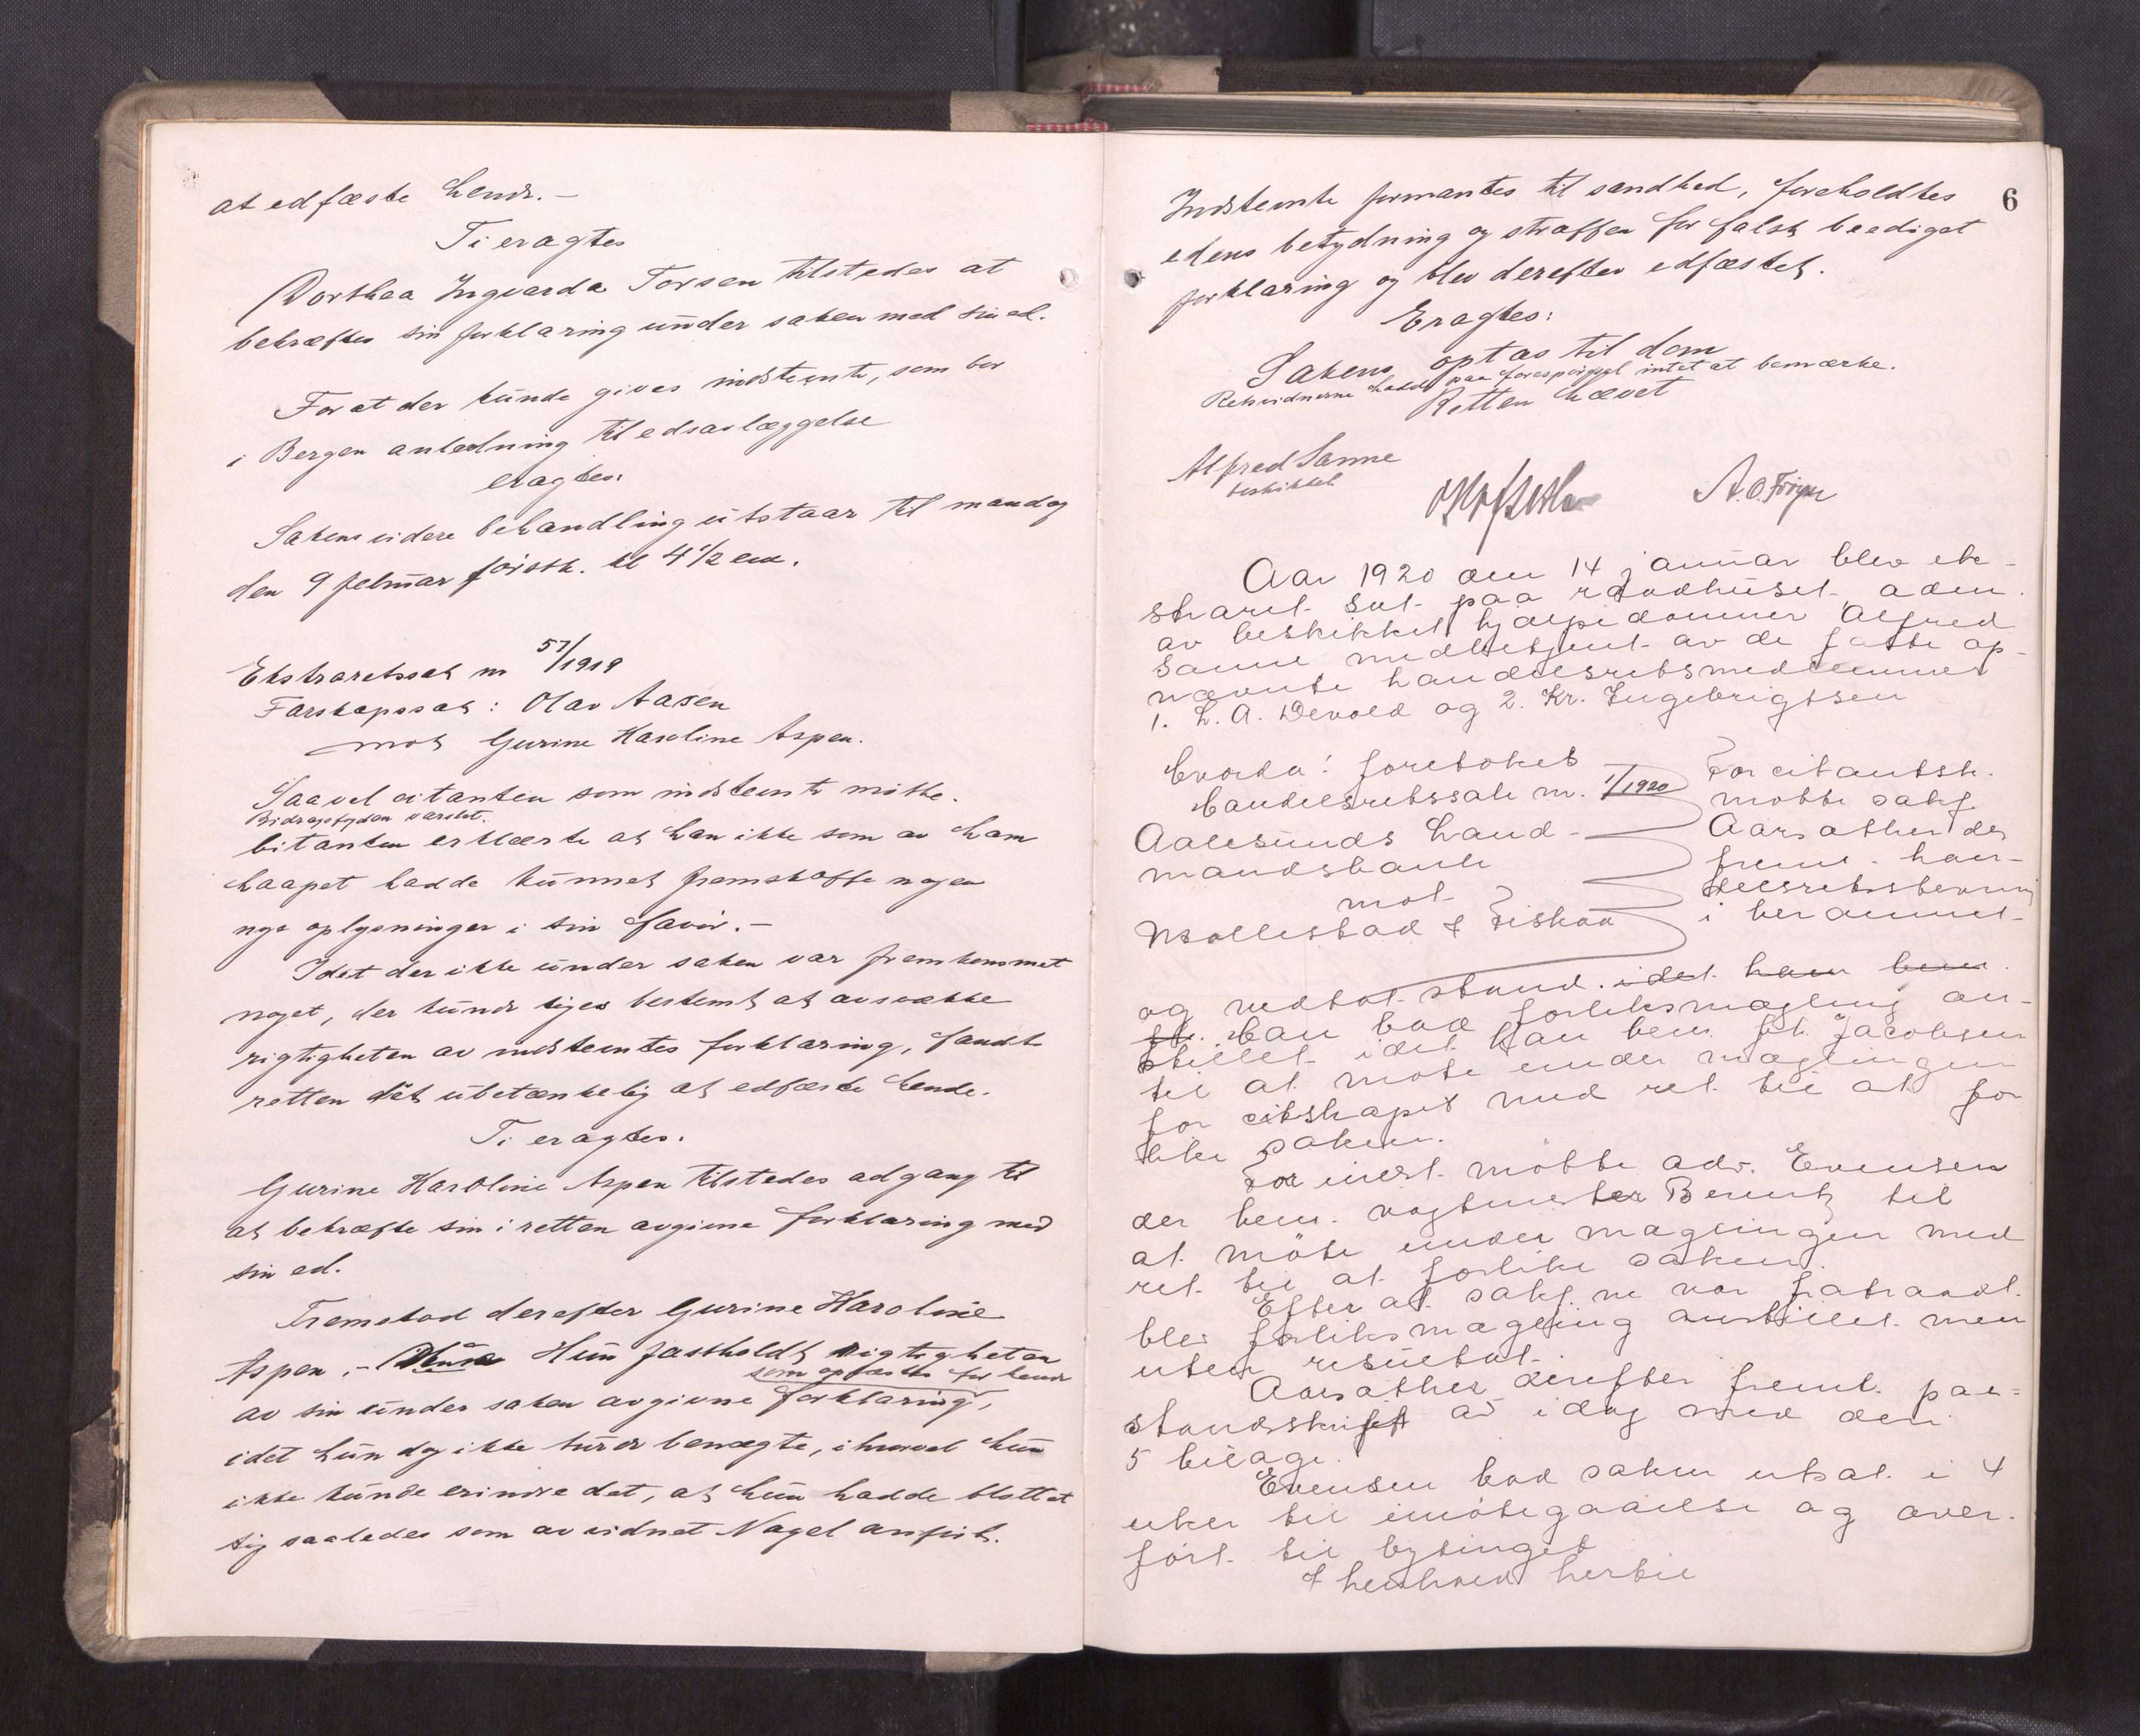 at edfæste hende.-
Ti eragtes
Dorthea Ingvarda Torsen tilstedes at
bekræftes sin forklaring under saken med sin ed.
For at der kunde gives indstevnte, som bor
i Bergen anledning til edsavlæggelse
eragtes:
Sakens videre behandling utstaar til mandag
den 9 februar førstk. kl 4 1/2 em.
Ekstraretssak nr 57/1919
Farskapssak: Olav Aasen
mot Gurine Haroline Aspen.
Saavel citanten som indstevnte møtte.
Bidragsfogden varslet.
Citanten erklærte at han ikke som av ham
haapet hadde kunnet fremskaffe nogen
nye oplysninger i sin favør.-
Idet der ikke under saken var fremkommet
noget, der kunde siges bestemt at avsvække
rigtigheten av indstevntes forklaring, fandt
retten det ubetænkelig at edfæste hende.
Ti eragtes.
Gurine Haroline Aspen tilstedes adgang til
at bekræfte sin i retten avgivne forklaring med
sin ed.
Fremstod derefter Gurine Haroline
Aspen.- Hun fastholdt rigtigheten
som oplæstes for hende
av sin under saken avgivne forklaring,
idet hun dog ikke turde benægte, ihvorvel hun
ikke kunde erindre det, at hun hadde blottet
sig saaledes som av vidnet Nagel anført.
6
Indstevnte formantes til sandhed, foreholdtes
edens betydning og straffen for falsk beediget
forklaring og blev derefter edfæstet.
Eragtes:
Saken optas til dom
Retsvidnerne hadde paa forespørgsel intet at bemærke.
Retten hævet
Alfred Sanne
beskikket
Aar 1920 den 14 januar blev ek-
straret sat paa raadhuset adm.
av beskikket hjælpedommer Alfred
Sanne medbetjent av de faste op-
nævnte handelsretsmedlemmer
1. L. A. Devold og 2. Kr. Ingebrigtsen
Hvorda: foretokes
handelsretssak nr. 1/1920
Aalesunds Land-
mandsbank
mot
Mollestad & Fiskaa
For citantsk.
møtte sakf.
Aarsæther der
freml. han-
delsretsstevning
i berammet-
og vedtat stand. idet han bem.
Han bad forliksmægling an-
stillet idet han bem. Jacobsen
til at møte under mæglingen
for citskapet med ret til at for
like saken.
For indst. møtte adv. Evensen
der bem. vogtmester Berentz til
at møte under mæglingen med
ret til at forlike saken.
Efter at sakf.ne var fratraadt
blev forliksmægling anstillet men
uten resultat.
Aarsæther derefter freml. paa-
standsskrift av idag med den
5 bilage.
Evensen bad saken utsat i 4
uker til imøtegaaelse og over-
ført til bytinget